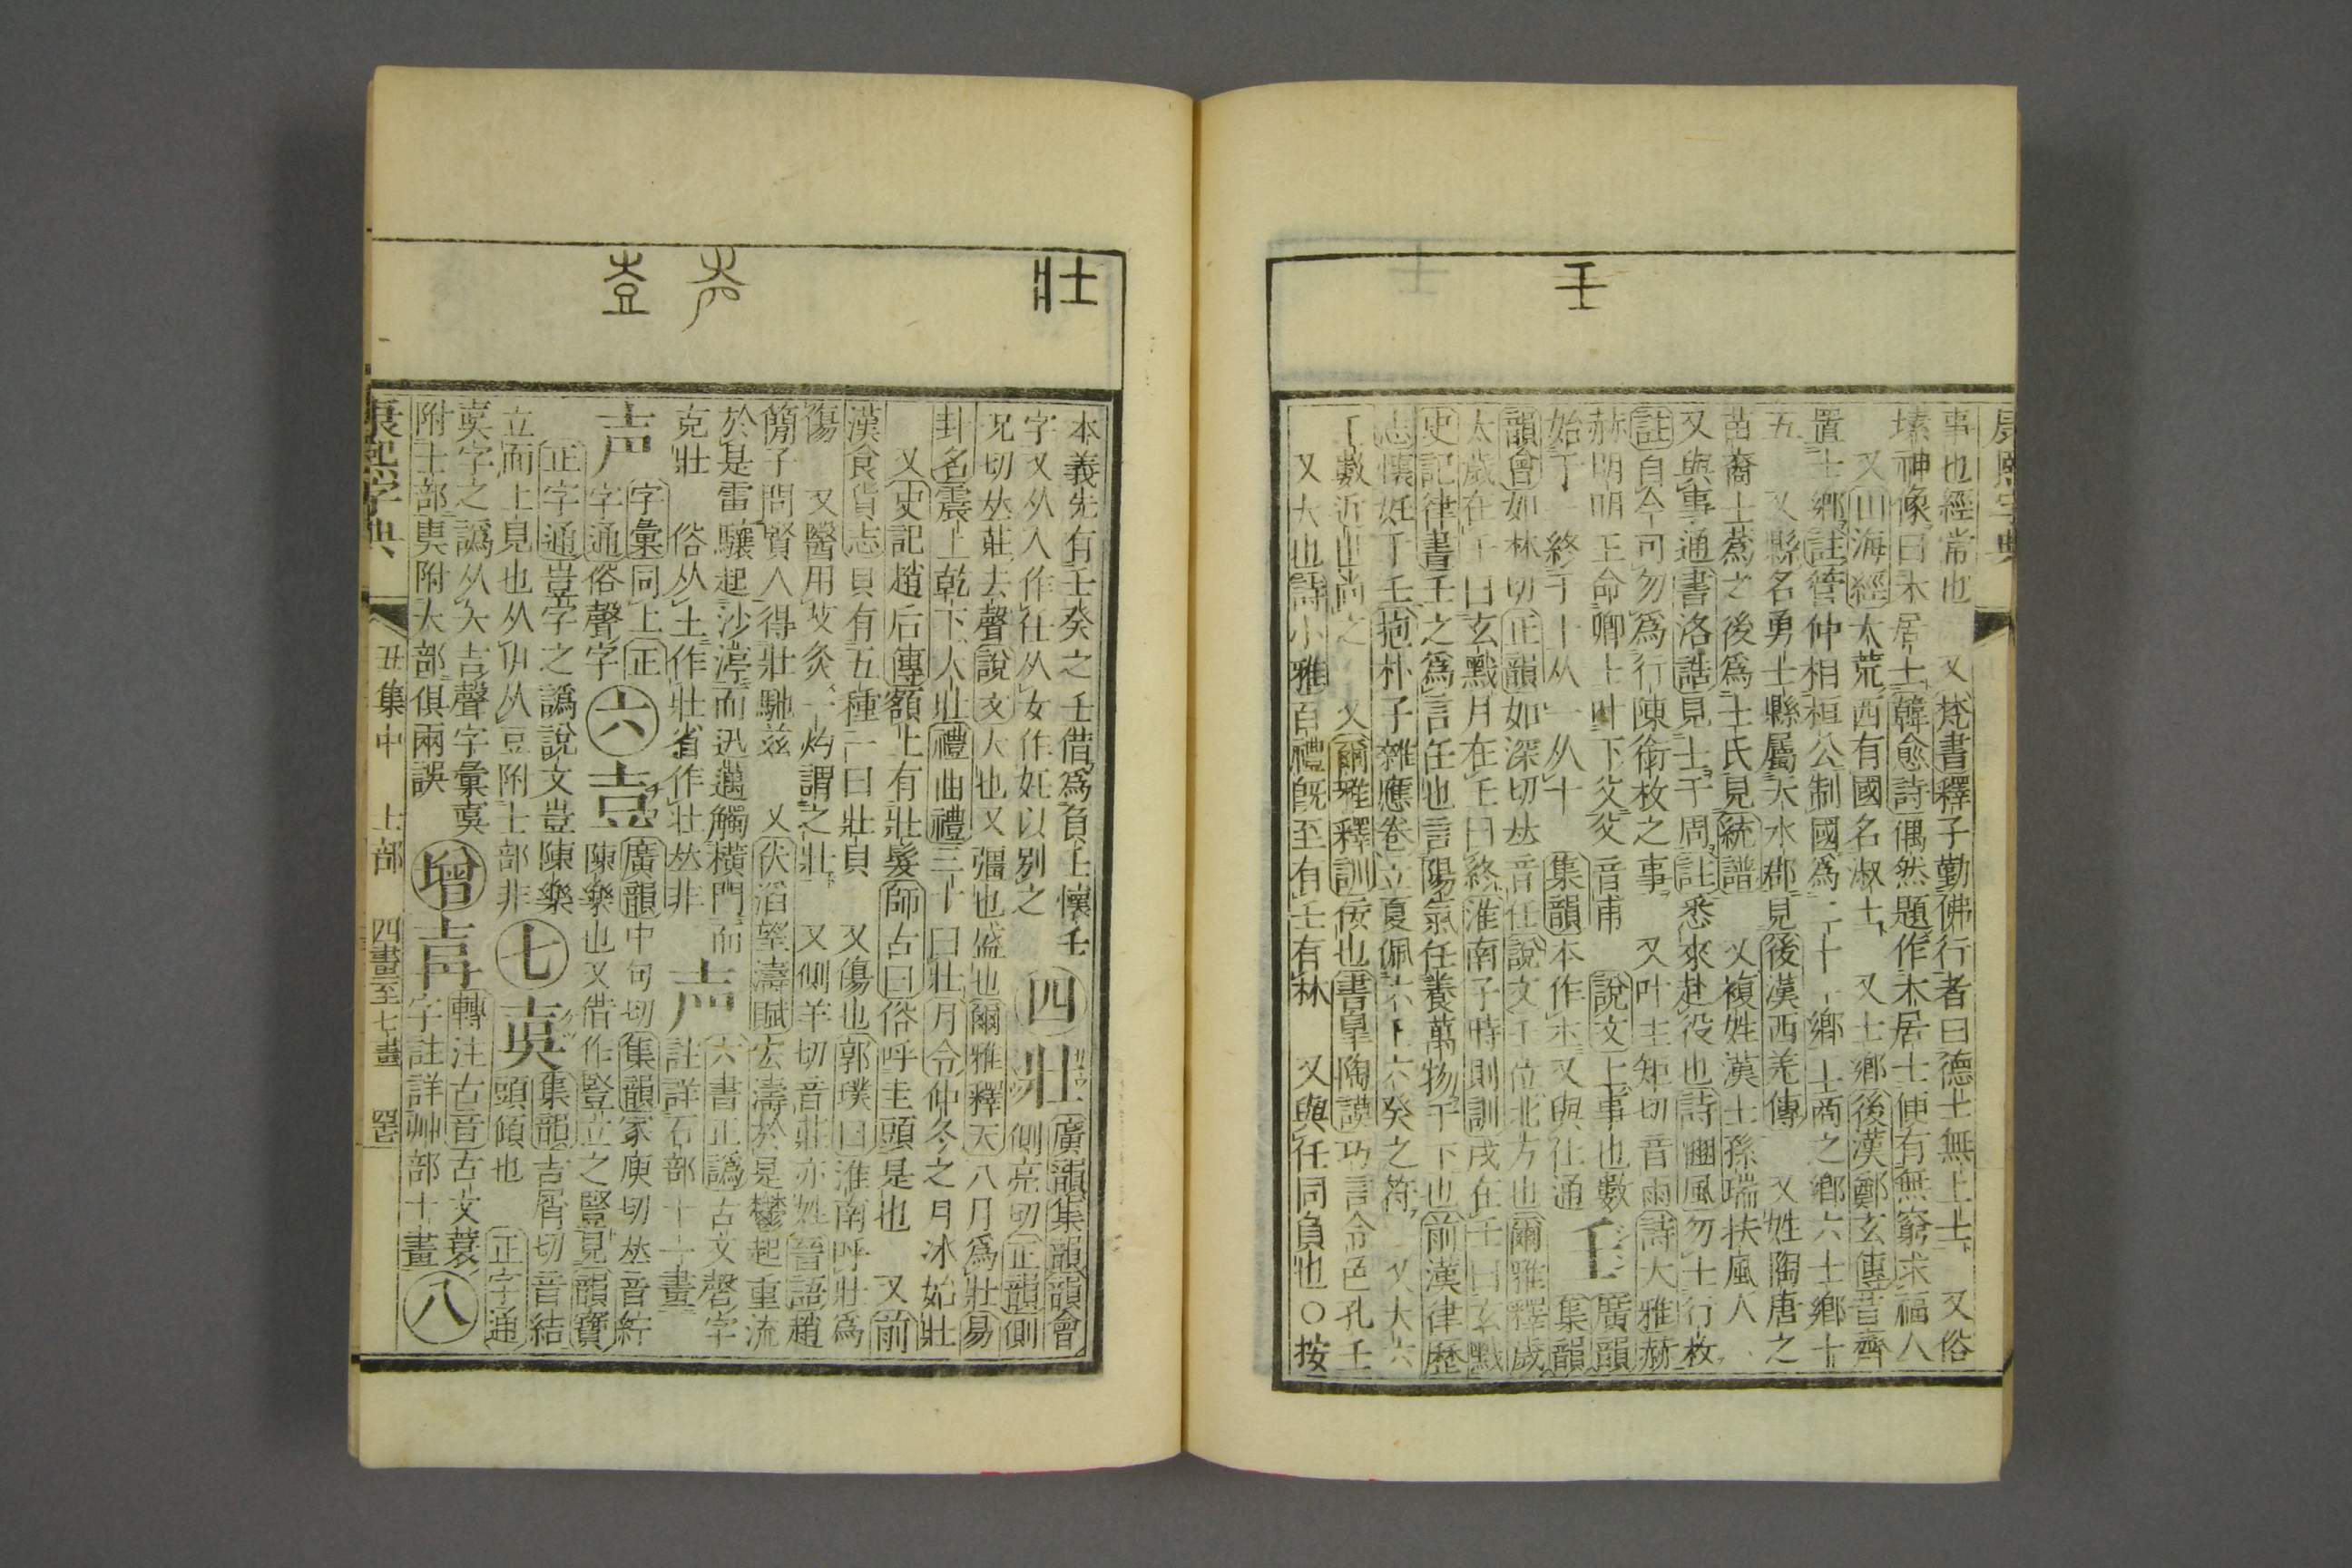 壬
事也經常也　又梵書釋子勤佛行者曰德士無上士　又俗
塐神像曰木居士韓愈詩偶然題作木居士便有無窮求福人
又山海經大荒西有國名淑士　又士鄉後漢鄭玄傳昔齊
置士鄉註管仲相桓公制國爲二十一鄉工商之鄉六士鄉十
五　又縣名勇士縣屬天水郡見後漢西羌傳　又姓陶唐之
苗裔士蔿之後爲士氏見統譜　又複姓漢士孫瑞扶風人
又與事通書洛誥見士于周註悉來赴役也詩豳風勿士行枚
註自今可勿爲行陳銜枚之事　又叶主矩切音雨詩大雅赫
赫明明王命卿士叶下父父音甫　說文上事也數
始于一終于十从一从十　壬　廣韻
集韻本作𡈼又與任通　集韻
韻會如林切正韻如深切𠀤音任說文壬位北方也爾雅釋歲
太歲在壬曰玄黓月在壬曰終淮南子時則訓戌在壬曰玄黓
史記律書壬之爲言任也言陽氣任養萬物于下也前漢律歷
志懷妊于壬抱朴子雜應卷立夏佩六壬六癸之符　又大六
丁數近世尚之　又爾雅釋訓佞也書臯陶謨巧言令色孔壬
又大也詩小雅百禮旣至有壬有林　又與任同負也○按
壯
本義先有壬癸之壬借爲負上懷壬
字又从人作任从女作妊以別之　四　壯　廣韻集韻韻會
側亮切正韻側
況切𠀤莊去聲說文大也又彊也盛也爾雅釋天八月爲壯易
卦名震上乾下大壯禮曲禮三十曰壯月令仲冬之月冰始壯
又史記趙后傳額上有壯髮師古曰俗呼圭頭是也　又前
漢食貨志貝有五種一曰壯貝　又傷也郭璞曰淮南呼壯爲
傷　又醫用艾灸一灼謂之壯　又側羊切音莊亦姓晉語趙
簡子問賢人得壯馳茲　又伏滔望濤賦宏濤於是鬱起重流
於是雷驤起沙渟而迅邁觸橫門而　声　六書正譌古文磬字
克壯　俗从土作壯省作壮𠀤非　註詳石部十一畫
声　字彙同上正
字通俗聲字　六　壴　廣韻中句切集韻冢庾切𠀤音紵
陳樂也又借作豎立之豎見韻寶
正字通豈字之譌說文豈陳樂
立而上見也从屮从豆附士部非　七　集韻吉屑切音結
頭傾也　正字通
奊字之譌从矢吉聲字彙奊
附士部奊附大部俱兩誤　增　轉注古音古文蓑
字註詳艸部十畫　八
康熙字典　丑集中　士部　四畫至七畫